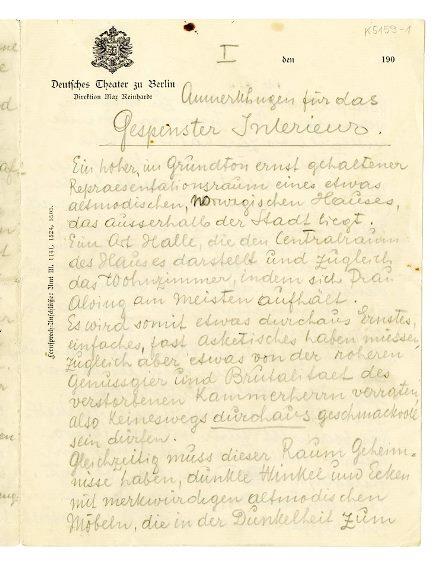 K5159-1
I
den 190
Deutsches Theater zu Berlin
Direktion Max Reinhardt
Anmerkungen für das
Gespenster Interieur.
Ein hoher, im Grundton ernst gehaltener
Repraesentationsraum eines etwas
altmodischen, norwegischen Hauses,
das ausserhalb der Stadt liegt.
Eine Art Halle, die den Centralraum
des Hauses darstellt und zugleich
das Wohnzimmer, indem sich Frau
Alving am meisten aufhält.
Es wird somit etwas durchaus Ernstes,
einfaches, fast asketisches haben müssen,
zugleich aber etwas von der roheren
Genussgier und Brutalitaet des
verstorbenen Kammerherrn verraten,
also keineswegs durchaus geschmackvoll
sein dürfen.
Gleichzeitig muss dieser Raum Geheim-
nisse haben, dunkle Winkel und Ecken
mit merkwürdigen altmodischen
Möbeln, die in der Dunkelheit zum
Fernsprech-Anschlüsse: Amt III. 1141, 1524,